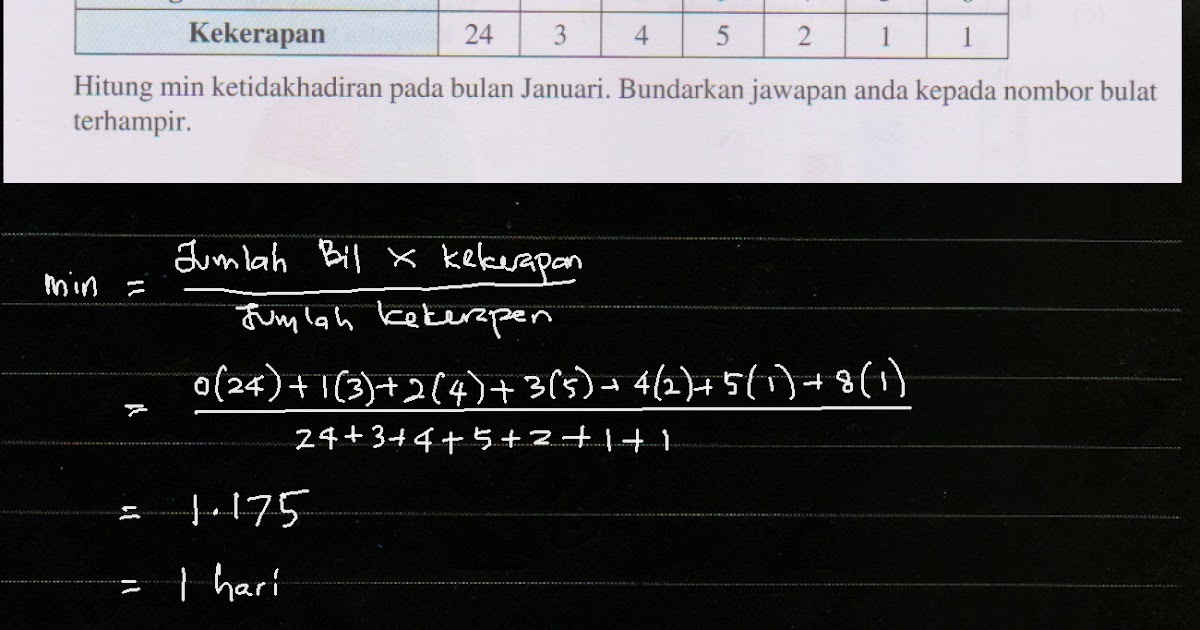 Kekerapan 24 3 4 5 2 1 1
Hitung min ketidakhadiran pada bulan Januari. Bundarkan jawapan anda kepada nombor bulat
terhampir.
min = Jumlah Bil × kekerapan
Jumlah kekerapen
= 0(24)+1(3)+2(4)+3(5)+4(2)+5(1)+8(1)
24+3+4+5+2+1+1
= 1.175
= 1 hari